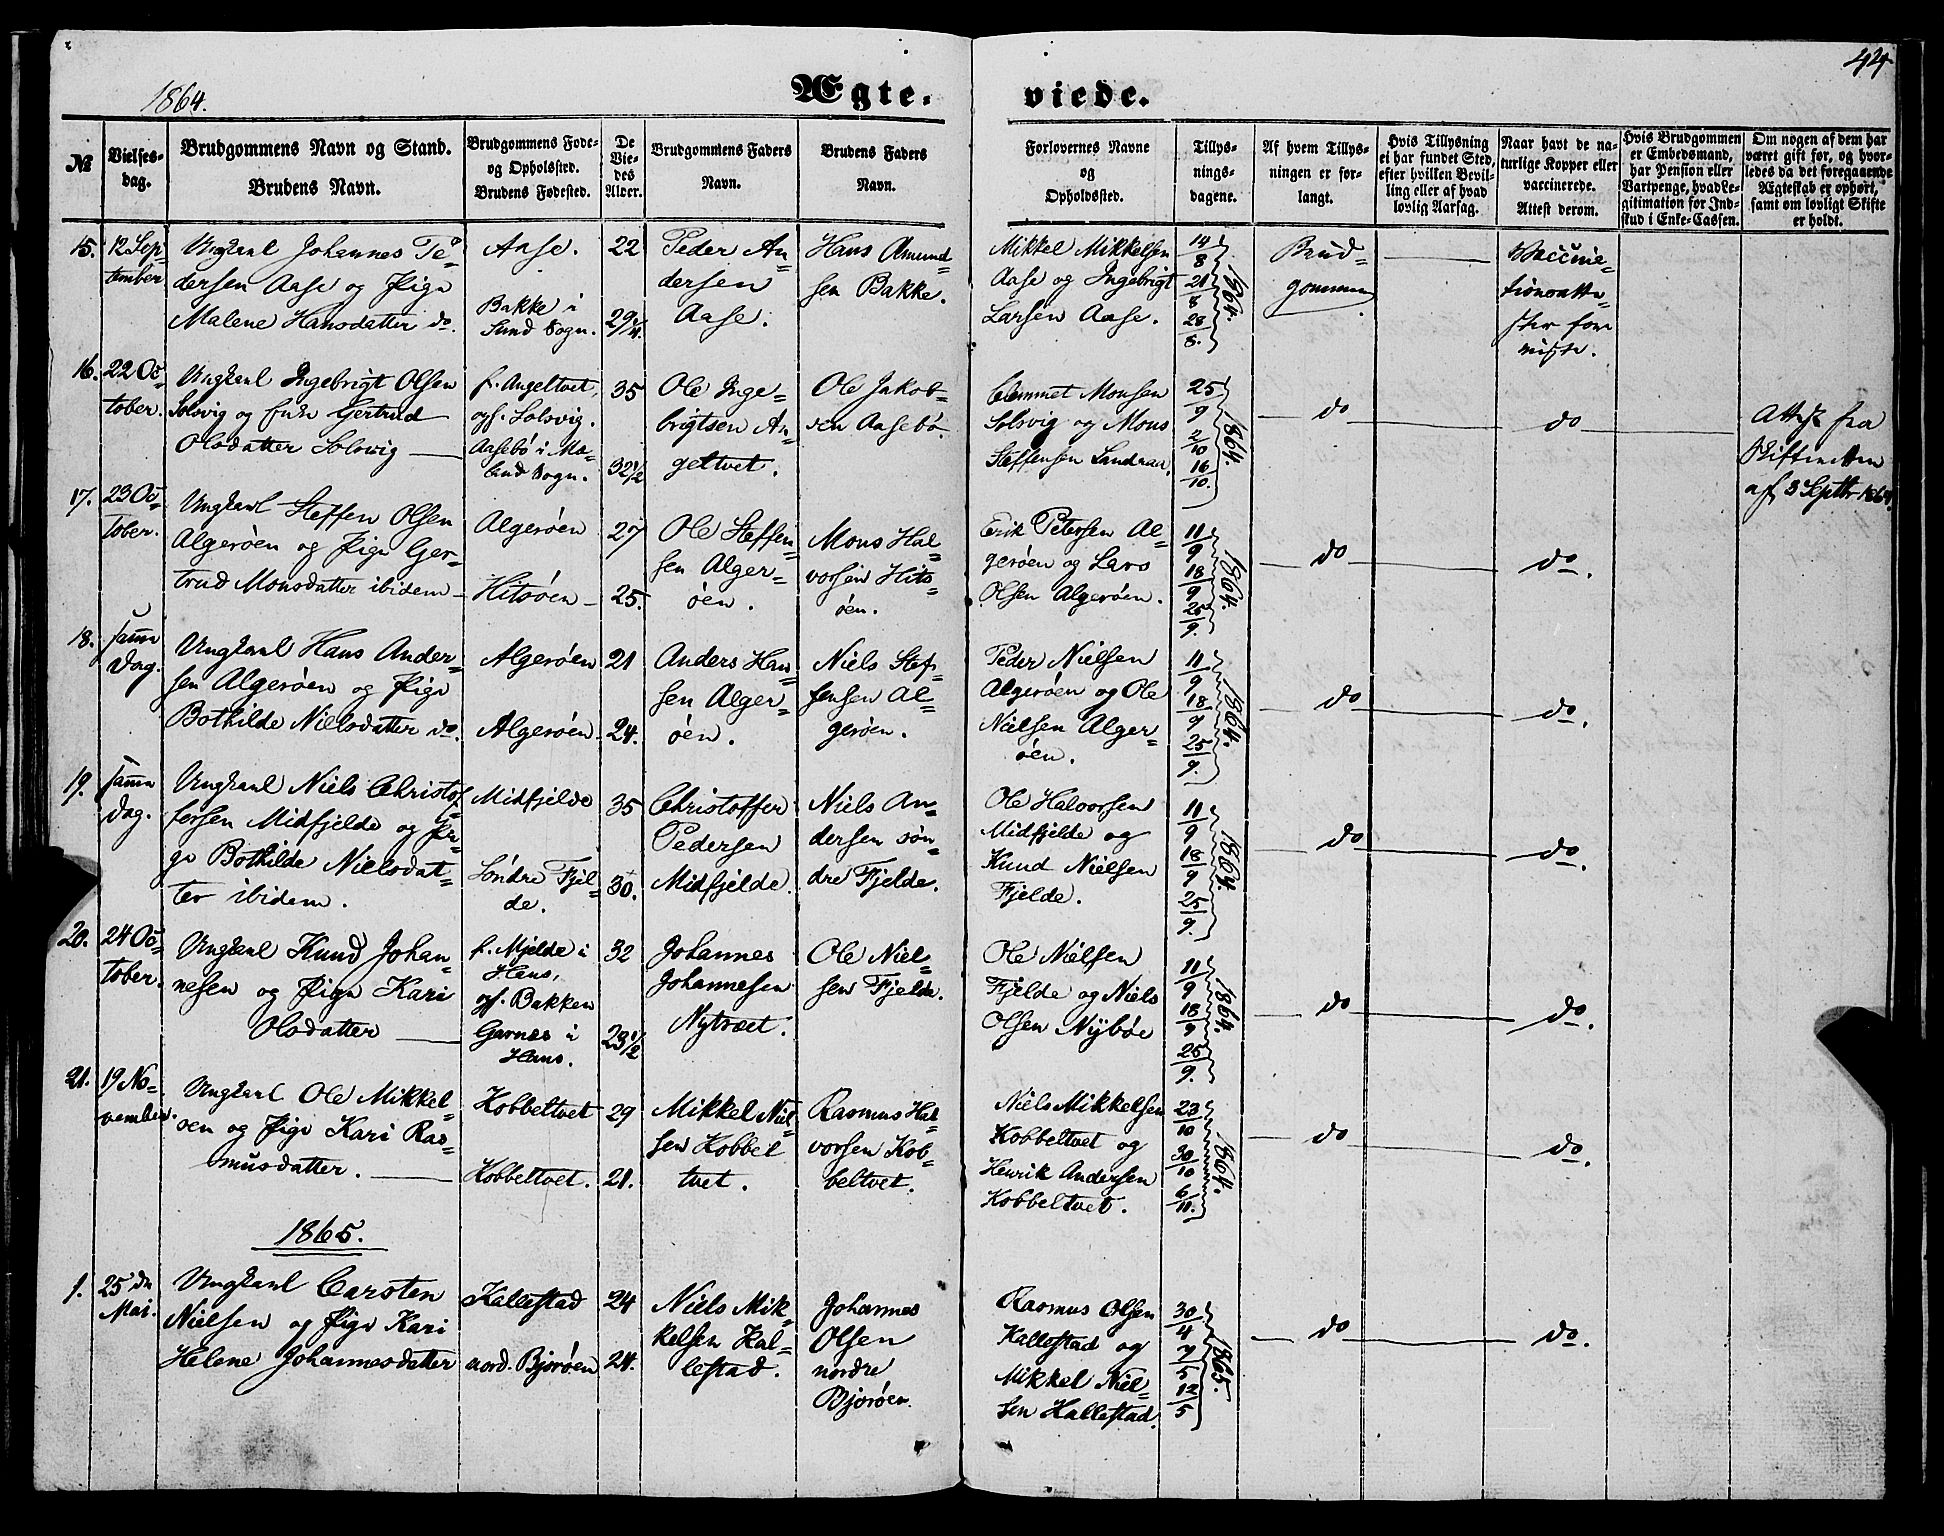 44
1864.
Ægte-viede.
№
Vielses-
dag.
Brudgommens Navn og Stand.
Brudens Navn.
Brudgommens Føde-
og Opholssted.
Brudens Fødested.
De
Vie-
des
Alder.
Brudgommens Faders
Navn.
Brudens Faders
Navn.
Forlovernes Navne
og
Opholdssted.
Tillys-
nings-
dagene.
Af hvem Tillys-
ningen er for-
langt.
Hvis Tillysning
ei har fundet Sted,
efter hvilken Bevil-
ling eller af hvad
lovlig Aarsag.
Naar havt de na-
turlige Kopper eller
vaccinerede.
Attest derom.
Hvis Brudgommen
er Embedsmand,
har Pension eller
Vartpenge, hvad Le-
gitimation for Ind-
skud i Enke-Cassen.
Om nogen af dem har
været gift før, og hvor-
ledes da det foregaaende
Ægteskab er ophørt,
samt om lovligt Skifte
er holdt.
15.
12 Sep-
tember
Ungkarl Johannes Pe-
dersen Aase og Pige
Malene Hansdatter do.
Aase.
Bakke i
Sund Sogn.
22
29 1/4.
Peder An-
dersen
Aase.
Hans Amund-
sen Bakke.
Mikkel Mikkelsen
Aase og Ingebrigt
Larsen Aase.
14/8
21/8
28/8.
1864.
Brud-
gommen
Vaccine-
tionsatte-
ster fore
viste.
16.
22 Oc-
tober.
Ungkarl Ingebrigt Olsen
Solsvig og Enke Gertrud
Olsdatter Solsvig
f. Angeltvet,
opf. Solsvig.
Aasebö i Mæ-
land Sogn.
35
32 1/2
Ole Inge-
brigtsen An-
geltvet.
Ole Jakob-
sen Aasebö.
Clemmet Monsen
Solsvig og Mons
Steffensen Landraa.
25/9
2/10
16/10.
1864.
do
do
Attest fra
Skifteretten
af 3 Septbr 1864.
17.
23 Oc-
tober.
Ungkarl Steffen Olsen
Algeröen og Pige Ger-
trud Monsdatter ibidem
Algeröen
Hitsöen
27
25.
Ole Steffen-
sen Alger-
öen.
Mons Hal-
vorsen Hits-
öen.
Erik Petersen Al-
geröen og Lars
Olsen Algeröen.
11/9
18/9
25/9.
1864.
do
do.
18.
samme
Dag.
Ungkarl Hans Ander-
sen Algeröen og Pige
Bothilde Nielsdatter do.
Algeröen
Algeröen.
21
24.
Anders Han-
sen Alger-
öen.
Niels Stef-
fensen Al-
geröen.
Peder Nielsen
Algeröen og Ole
Nielsen Alger-
öen.
11/9
18/9
25/9.
1864.
do
do.
19.
samme
Dag.
Ungkarl Niels Christof-
fersen Midfjelde og Pi-
ge Bothilde Nielsdat-
ter ibidem.
Midfjelde
Söndre Fjel-
de.
35
30.
Christoffer
Pedersen
Midfjelde.
Niels An-
dersen sön-
dre Fjelde.
Ole Halvorsen
Midfjelde og
Knud Nielsen
Fjelde.
11/9
18/9
25/9.
1864.
do
do.
20.
24 Oc-
tober.
Ungkarl Knud Johan-
nesen og Pige Kari
Olsdatter
f. Mjelde i
Haus,
opf. Bakken
Garnes i
Haus.
32
23 1/2
Johannes
Johannesen
Nytræet.
Ole Niel-
sen Fjelde.
Ole Nielsen
Fjelde og Niels
Olsen Nyböe
11/9
18/9
25/9.
1864.
do
do.
21.
19 No-
vember.
Ungkarl Ole Mikkel-
sen og Pige Kari Ras-
musdatter.
Kobbeltvet
Kobbeltvet.
29
21.
Mikkel Niel-
sen Kobbel
tvet.
Rasmus Hal-
vorsen Kob-
beltvet.
Niels Mikkelsen
Kobbeltvet og
Henrik Andersen
Kobbeltvet.
23/10
30/10
6/11.
1864.
do
do.
1865.
1.
25 de
Mai.
Ungkarl Carsten
Nielsen og Pige Kari
Helene Johannesdatter
Kallestad
nord. Bjoröen
24
24.
Niels Mik-
kelsen Kal-
lestad.
Johannes
Olsen
nordre
Bjoröen.
Rasmus Olsen
Kallestad og
Mikkel Niel-
sen Kallestad.
30/4
7/5
12/5
1865.
do
do.